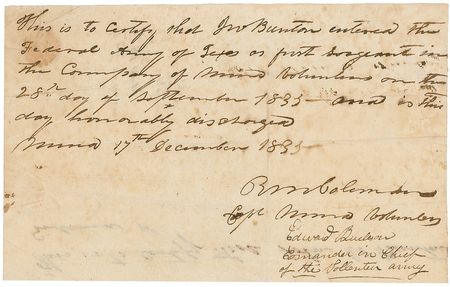 This is to certify that Jno Bunton entered the
Federal Army of Texs as first Sergeant in
the Company of Mina Volunteers on the
28th day of September 1835 and is this
day honorably discharged
Mina 17th December 1835
R M Coleman
Capt Mina Volunteers
Edward Burleson
Comander in Chief
of the Vollenteer army